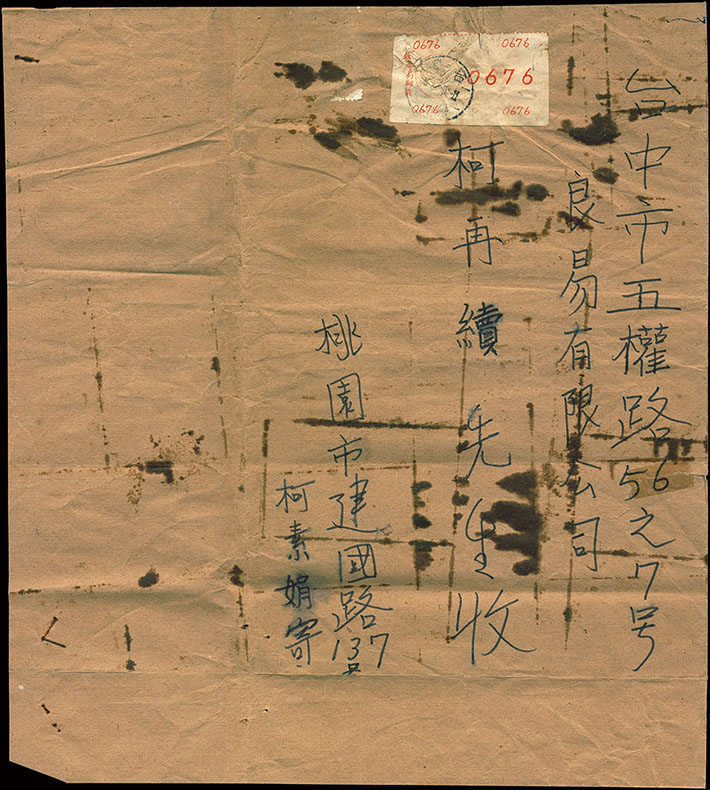 0676 0676
0676
0676 0676
台中市五權路56之7号
良易有限公司
柯再續先生收
桃園市建國路137号
柯素娟寄